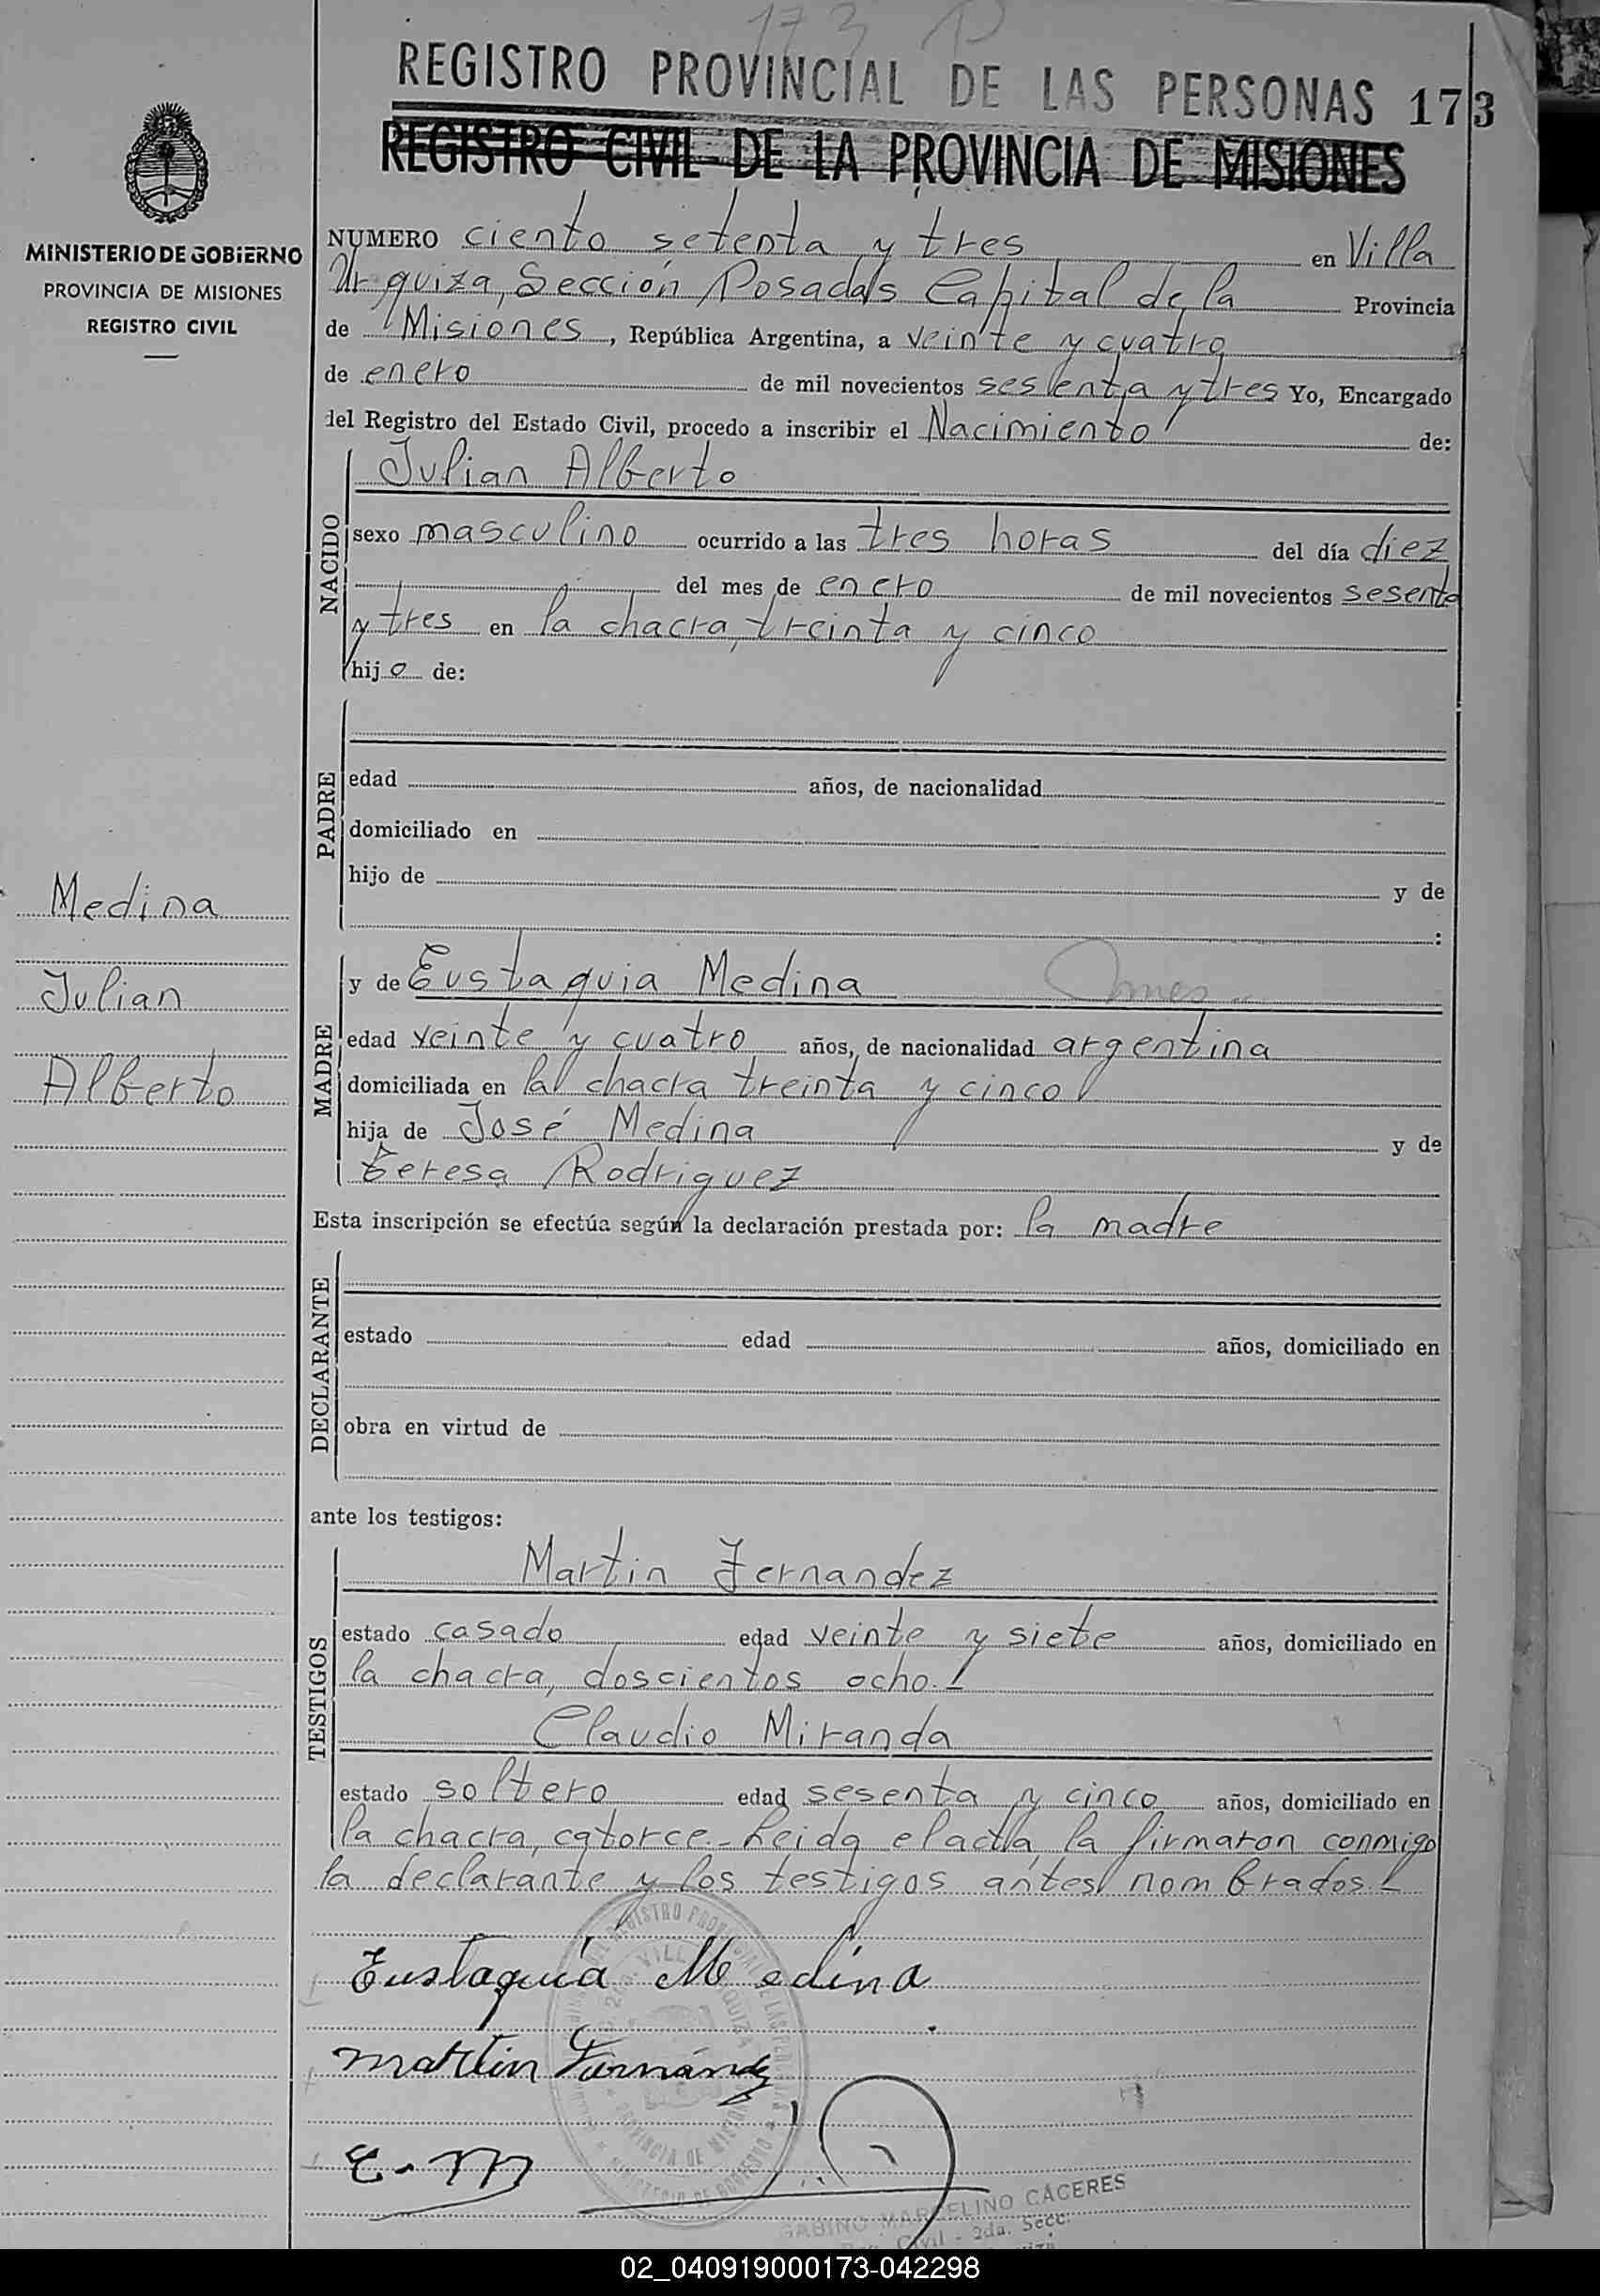 173
REGISTRO PROVINCIAL DE LAS PERSONAS 173
REGISTRO CIVIL DE LA PROVINCIA DE MISIONES
MINISTERIO DE GOBIERNO
PROVINCIA DE MISIONES
REGISTRO CIVIL
NUMERO ciento setenta y tres en Villa
Urquiza, Sección Posadas Capital de la Provincia
de Misiones, República Argentina, a veinte y cuatro
de enero de mil novecientos sesenta y tres Yo, Encargado
del Registro del Estado Civil, procedo a inscribir el Nacimiento de:
NACIDO
Julian Alberto
sexo masculino ocurrido a las tres horas del día diez
del mes de enero de mil novecientos sesenta
y tres en la chacra, treinta y cinco
hijo de:
PADRE
edad años, de nacionalidad
domiciliado en
hijo de y de
:
Medina
Julian
Alberto
MADRE
y de Eustaquia Medina
edad veinte y cuatro años, de nacionalidad argentina
domiciliada en la chacra treinta y cinco
hija de José Medina y de
Teresa Rodriguez
Esta inscripción se efectúa según la declaración prestada por: la madre
DECLARANTE
estado edad años, domiciliado en
obra en virtud de
ante los testigos:
TESTIGOS
Martin Fernandez
estado casado edad veinte y siete años, domiciliado en
la chacra, doscientos ocho.-
Claudio Miranda
estado soltero edad sesenta y cinco años, domiciliado en
la chacra, catorce.- Leida el acta, la firmaron conmigo
la declarante y los testigos antes nombrados.-
Eustaquia Medina
Martin Fernández
C. M
GABINO MARCELINO CÁCERES
Civil - 2da. Secc.
02_040919000173-042298